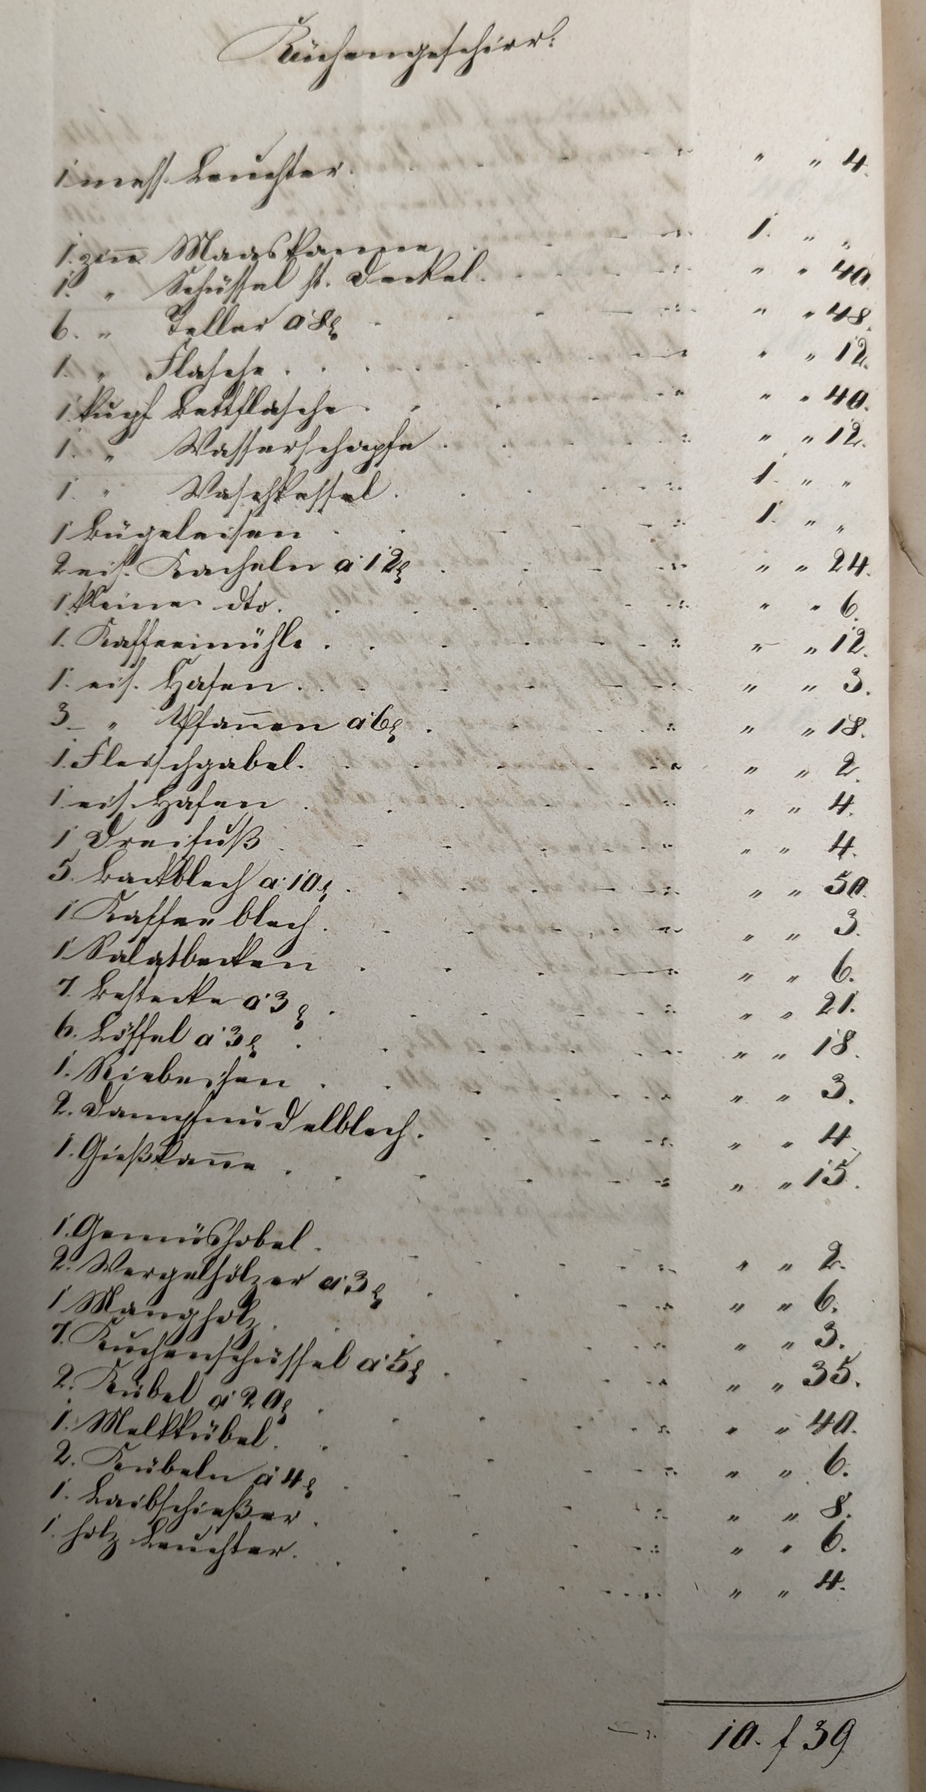 Küchengeschirr.
1 mess. Leuchter. " " 4.
1. zinn Maaskanne 1. " "
1. " Schüssel st. Deckel. " " 40.
6. " Teller a 8 " " 48.
1. " Flasche. " " 12.
1 kupf Bettflasche " " 40.
1. " Wasserschapfe " " 12.
1. " Waschkessel. 1. " "
1 Bügeleisen 1. " "
2 eis. Kacheln a 12 " " 24.
1 kleine dto. " " 6.
1. Kaffeemühle. " " 12.
1. eis. Hafen. " " 3.
3 " Pfannen a 6 " " 18.
1. Fleischgabel. " " 2.
1 eis. Hafen " " 4.
1 Dreifuß " " 4.
5. Backblech a 10 " " 50.
1 Kaffeeblech. " " 3.
1 Salatbecken " " 6.
7. Bestecke a 3 " " 21.
6. Löffel a 3 " " 18.
1. Riebeisen " " 3.
2. Dampfnudelblech. " " 4
1. Gießkanne " " 15.
1. Gemüshobel. " " 2.
2. Wergelhölzer a 3 " " 6.
1 Mangholz. " " 3.
7. Kuchenschüssel a 5 " " 35.
2. Kübel a 20 " " 40.
1. Melkkübel. " " 6.
2. Kübeln a 4 " " 8.
1. Laibschießer " " 6.
1. holz Leuchter. " " 4.
10. f 39